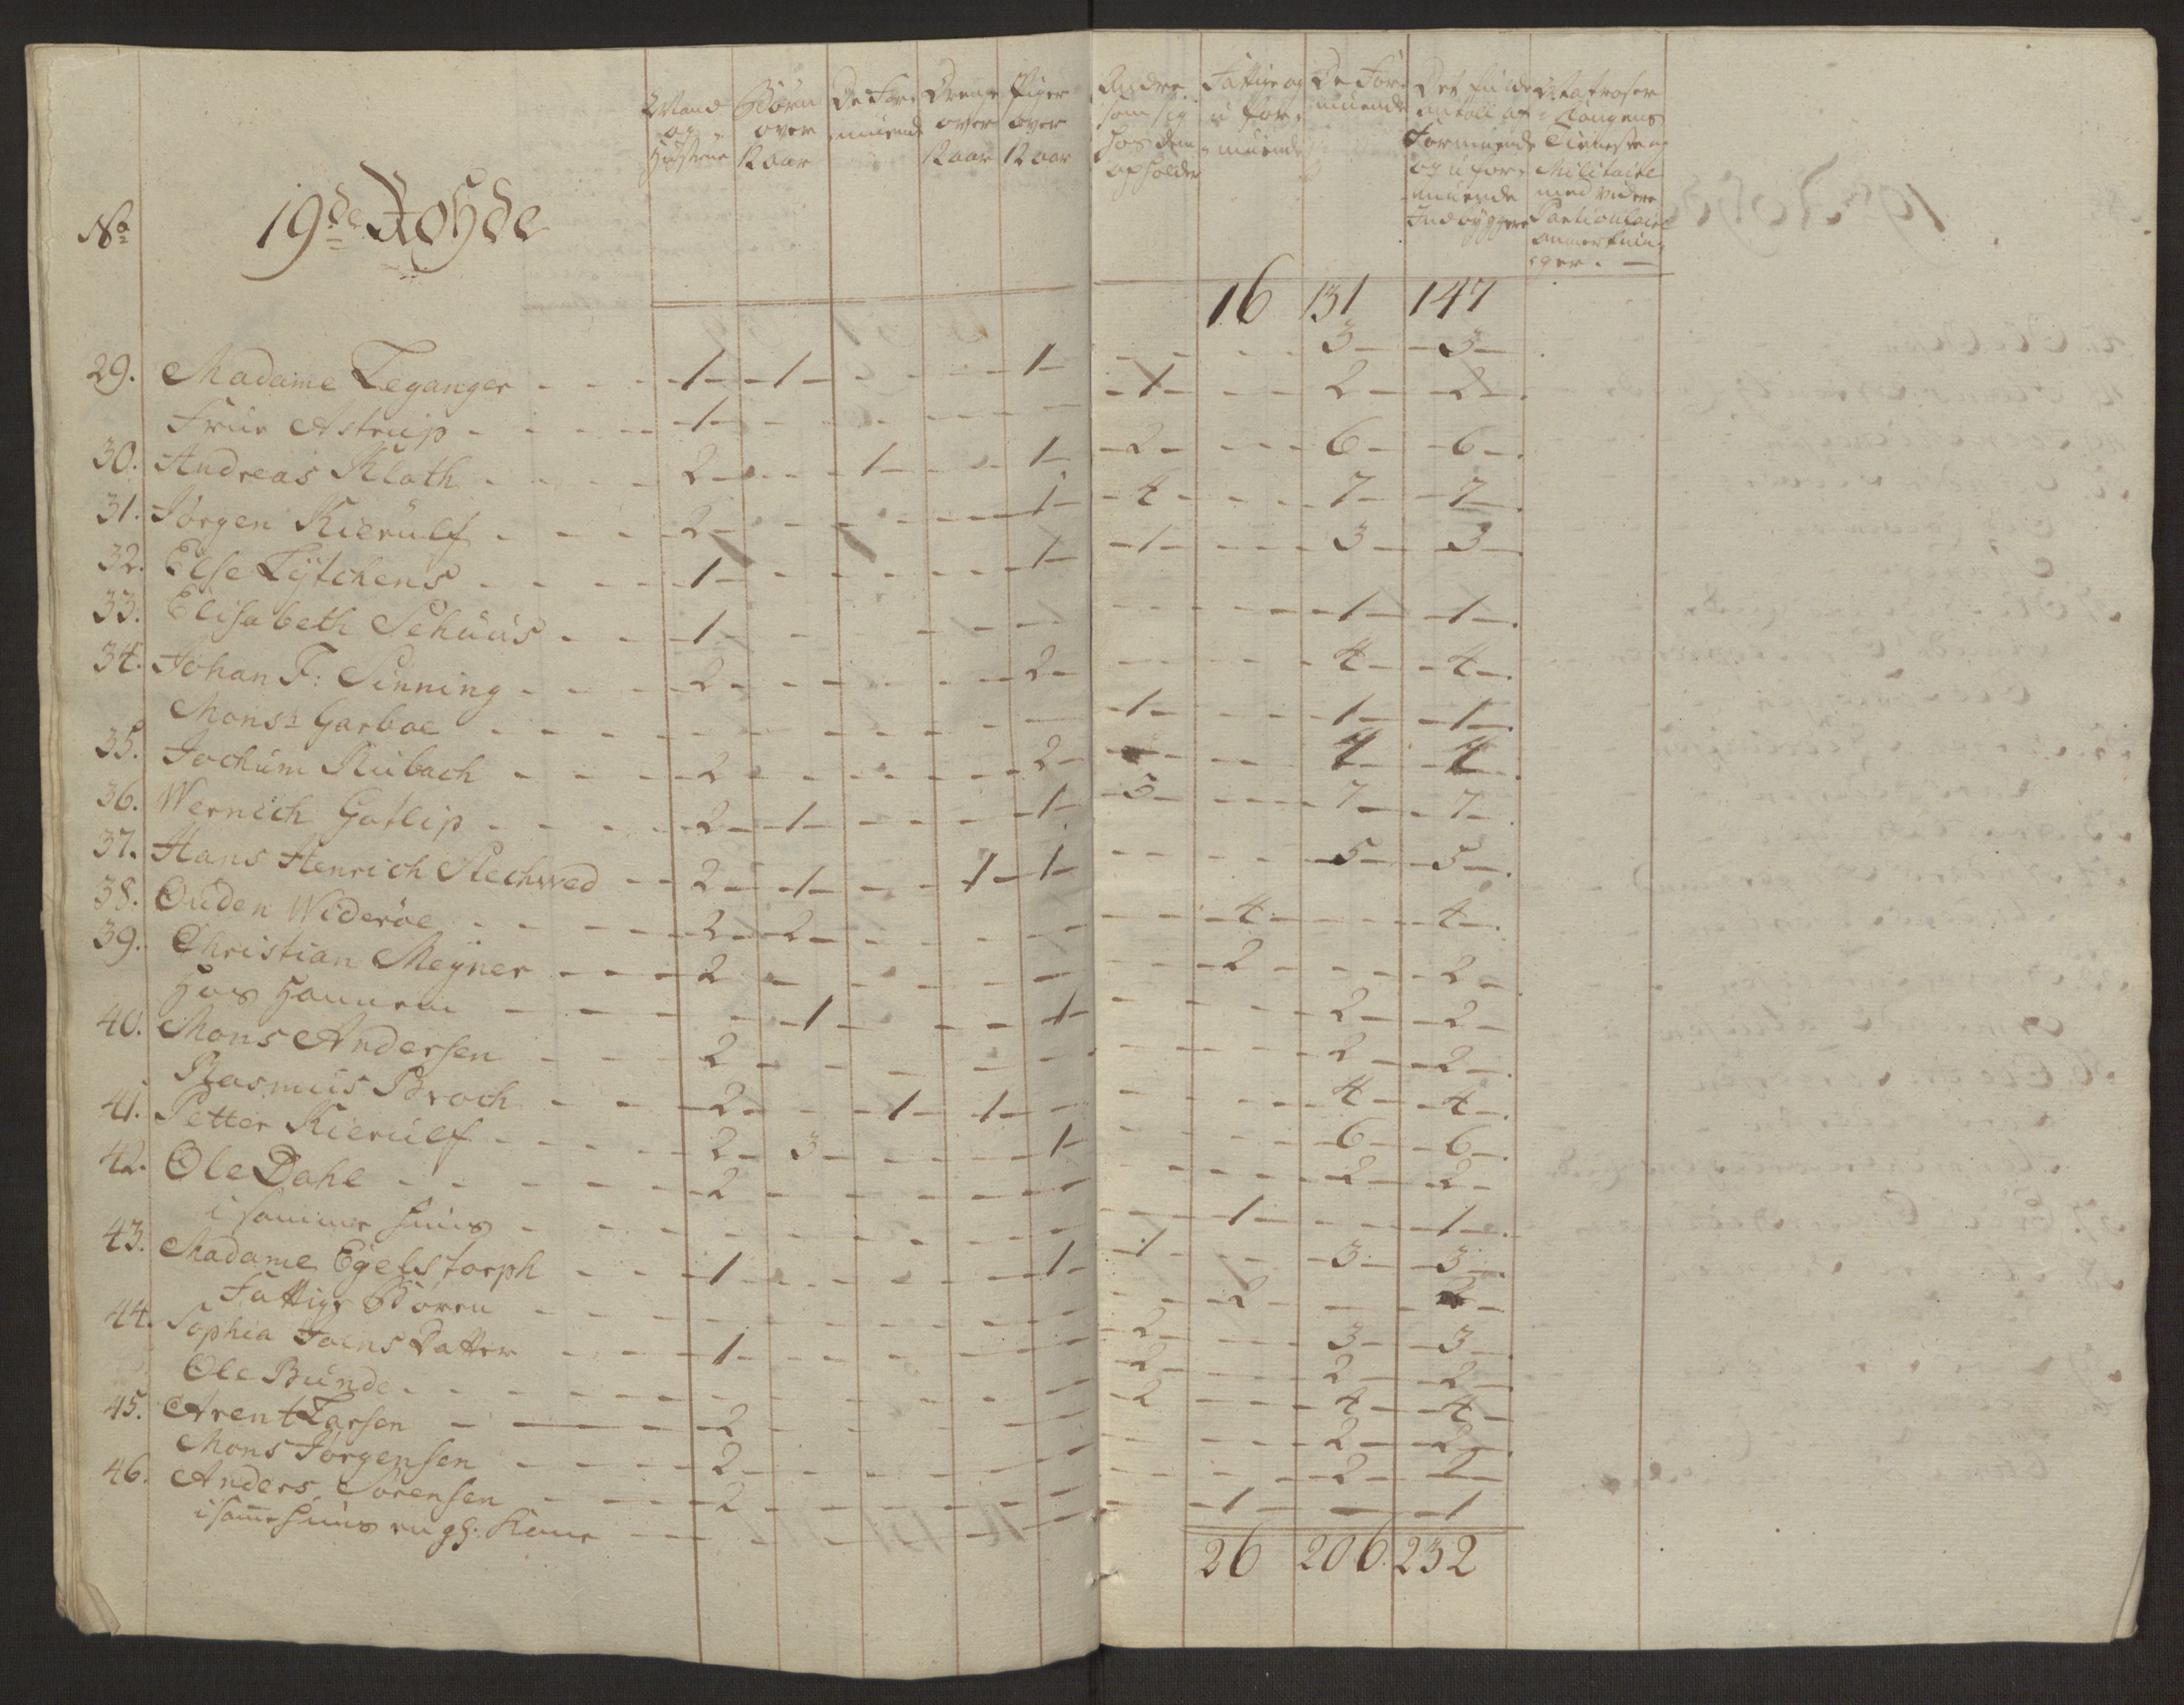 No 19de Rohde
Mand og Hustrue | Børn over 12 aar | De For-muende | Drenge over 12 aar | Piger over 12 aar | Andre som sig hos dem opholder | Fattige og uformuende | De Formuende | Det fulde Antall af Formuende og uformuende Indbyggere | Matroser i Kongens Tieneste og Militaire med videre Particulaire anmerkninger. —
16 131 147
29. Madame Leganger - - - 1 - 1 - - - 1 - - - 3 - 3
Frue Astrup - - - 1 - - - - - 1 - - 2 - 2
30. Andreas Klath - - - 2 - - 1 - - 1 - 2 - - 6 - 6
31. Jørgen Kierulf - - - 2 - - - - 1 - 4 - - 7 - 7
32. Else Lytchens - - - 1 - - - - 1 - 1 - - 3 - 3
33. Elisabeth Schuus - - 1 - - - - - - - 1 - 1
34. Johan F: Sinning - - - 2 - - - - 2 - - - 4 - 4
Monsr Garboe - - - - - - - - 1 - - 1 - 1
35. Jochum Rubach - - - 2 - - - - 2 - - - 4 - 4
36. Wernich Gotlip - - - 2 - 1 - - - 1 - 3 - - 7 - 7
37. Hans Henrich Stechwed - - 2 - 1 - - 1 - 1 - - - 5 - 5
38. Ouden Widerøe - - - 2 - 2 - - - - - 4 - - 4
39. Christian Meyner - - - 2 - - - - - - 2 - - 2
Hos Hannem - - - - 1 - - - 1 - - - 2 - 2
40. Mons Andersen - - - 2 - - - - - - - 2 - 2
Rasmus Broch - - - 2 - - 1 - 1 - - - - 4 - 4
41. Petter Kierulf - - - 2 - 3 - - - 1 - - - 6 - 6
42. Ole Dahl - - - 2 - - - - - - - 2 - 2
i samme Huus - - - - - - - - - 1 - - 1
43. Madame Egelstorph - - 1 - - - - 1 - 1 - - 3 - 3
Fattige Børn - - - - - - - - - 2 - - 2
44. Sophia Joens Datter - - 1 - - - - - 2 - - 3 - 3
Ole Bunde - - - - - - - - 2 - - 2 - 2
45. Arent Larsen - - 2 - - - - - 2 - - 4 - 4
Mons Jørgensen - - - 2 - - - - - - - 2 - 2
46. Anders Sørensen - - - 2 - - - - - - - 2 - 2
i same Huus en gl. Kone - - - - - - - - 1 - - 1
26 206. 232